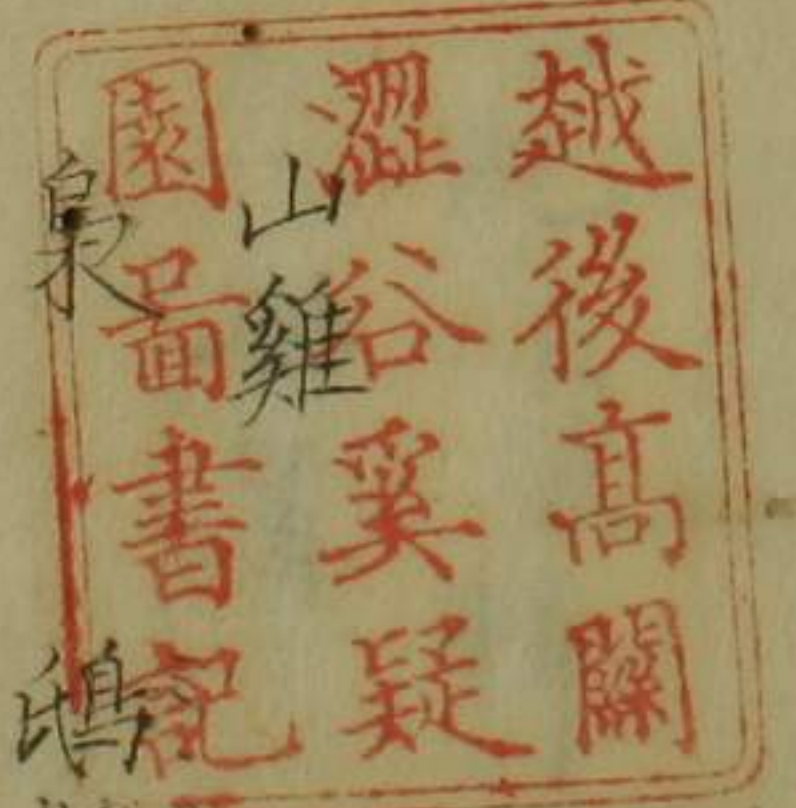 越後高關
澀谷奚疑
園啚書記
山雞
梟
鴟